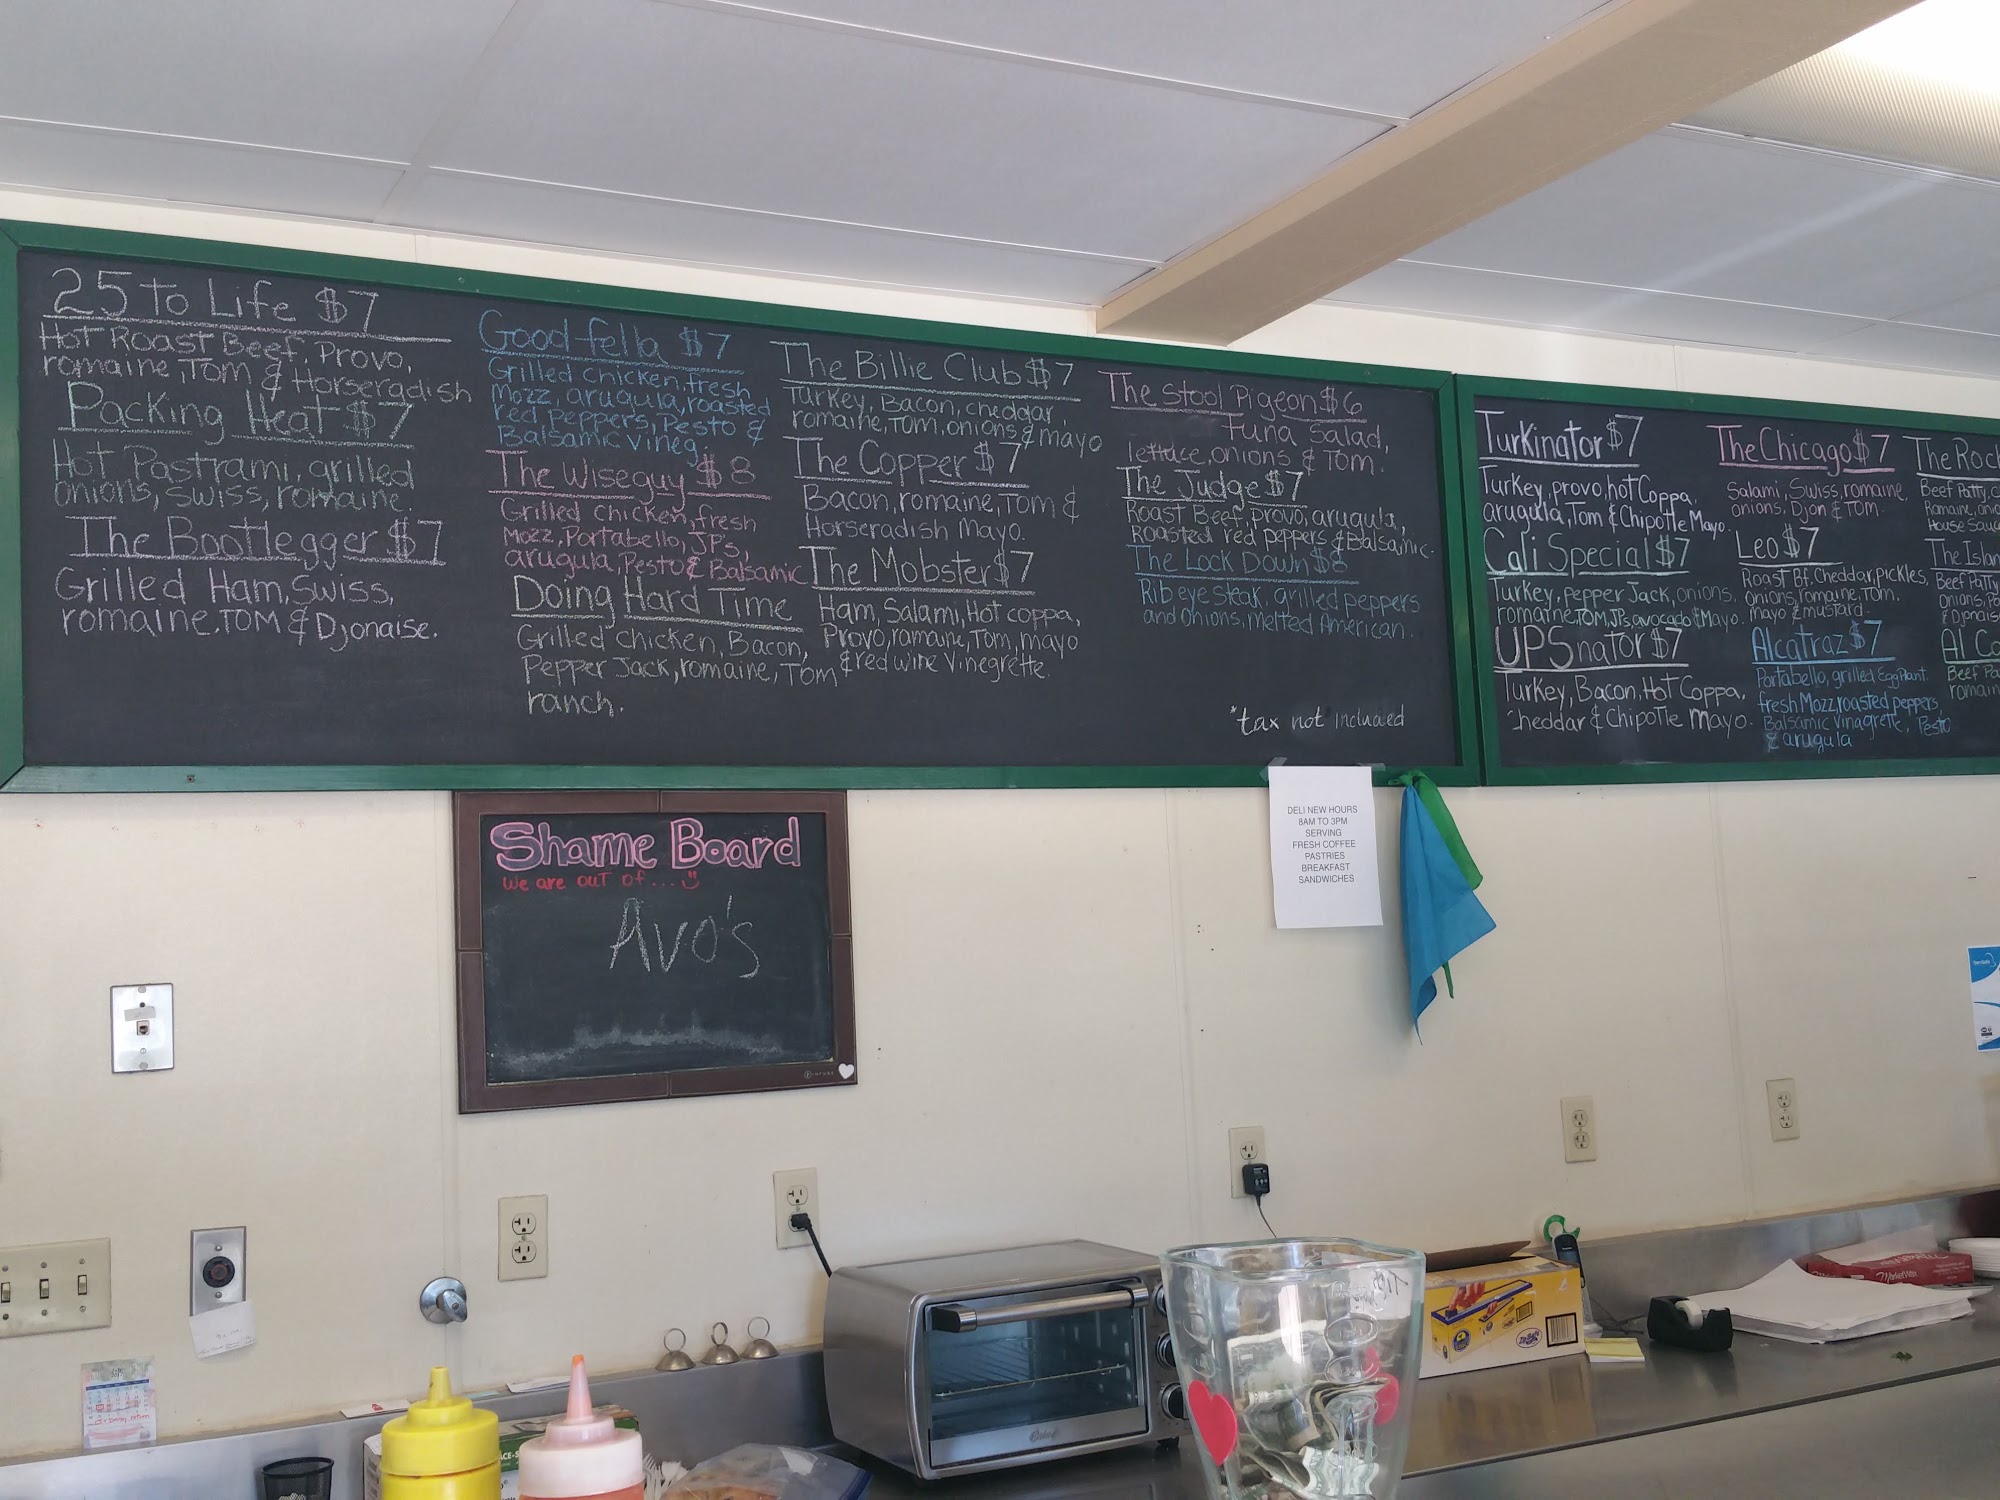 25 to Life $7
Hot Roast Beef, Provo,
romaine, Tom & Horseradish
Packing Heat $7
Hot Pastrami, grilled
onions, swiss, romaine.
The Bootlegger $7
Grilled Ham, Swiss,
romaine, TOM & Djonaise.
Good-fella $7
Grilled chicken, fresh
Mozz, arugula, roasted
red peppers, Pesto &
Balsamic vineg.
The Wiseguy $8
Grilled chicken, fresh
Mozz, Portabello, JP's,
arugula, Pesto & Balsamic
Doing Hard Time
Grilled chicken, Bacon,
Pepper Jack, romaine, Tom
ranch.
The Billie Club $7
Turkey, Bacon, cheddar,
romaine, Tom, onions & mayo
The Copper $7
Bacon, romaine, Tom &
Horseradish Mayo.
The Mobster $7
Ham, Salami, Hot coppa,
Provo, romaine, Tom, mayo
& red wine vinegrette.
The Stool Pigeon $6
Tuna Salad,
lettuce, onions & Tom.
The Judge $7
Roast Beef, provo, arugula,
Roasted red peppers & Balsamic.
The Lock Down $8
Rib eye steak, grilled peppers
and onions, melted American.
*tax not included
Turkinator $7
Turkey, provo, hot Coppa,
arugula, Tom & Chipotle Mayo.
Cali Special $7
Turkey, pepper Jack, onions,
romaine, TOM, JP's, avocado & Mayo.
UPSnator $7
Turkey, Bacon, Hot Coppa,
cheddar & Chipotle mayo.
The Chicago $7
Salami, Swiss, romaine,
onions, Djon & Tom.
Leo $7
Roast Bf, Cheddar, pickles,
onions, romaine, Tom.
mayo & mustard.
Alcatraz $7
Portabello, grilled EggPlant.
fresh Mozz, roasted peppers,
Balsamic vinagrette, Pesto
& arugula
The Rock
Beef Patty, c
Romaine, onio
House Sauc
The Islan
Beef Patty
Onions, Po
& Djonais
Al Ca
Beef Pa
romain
Shame Board
we are out of...
Avo's
DELI NEW HOURS
8AM TO 3PM
SERVING
FRESH COFFEE
PASTRIES
BREAKFAST
SANDWICHES
Oster
Ziploc